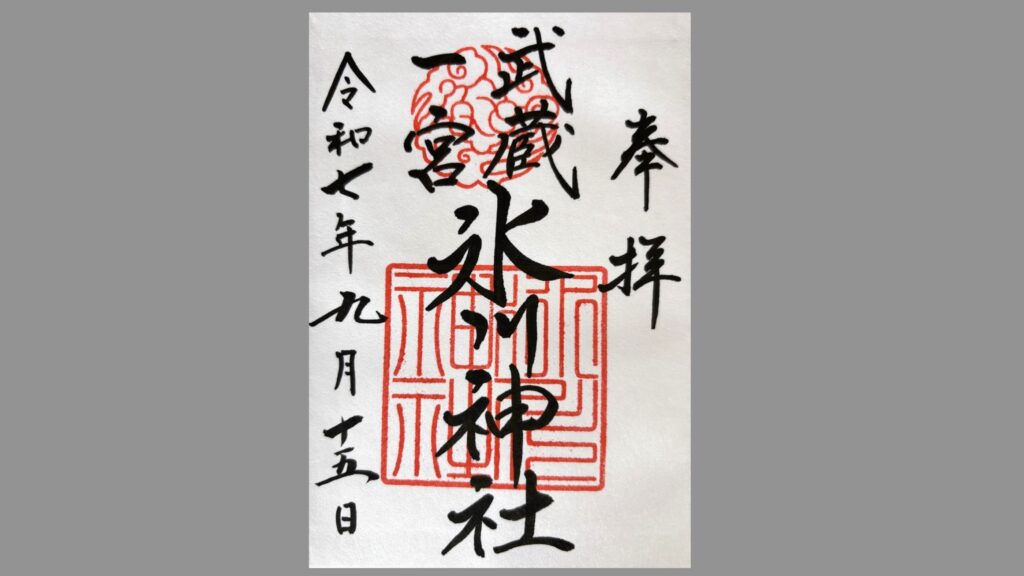 奉拝
武蔵
一宮
氷川神社
令和七年九月十五日